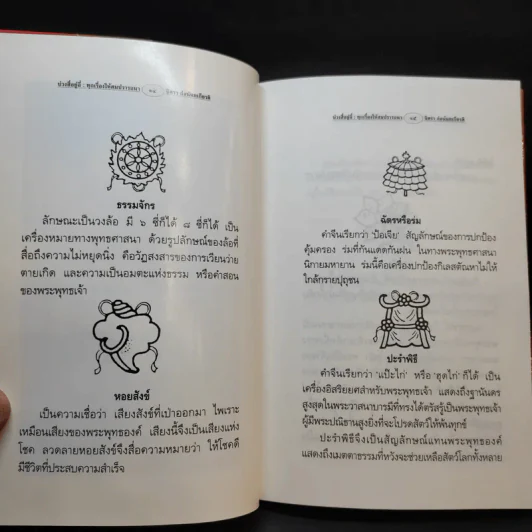 ธรรมจักร
ลักษณะเป็นวงล้อ มี ๖ ซี่ก็ได้ ๘ ซี่ก็ได้ เป็น
เครื่องหมายทางพุทธศาสนา ด้วยรูปลักษณ์ของล้อที่
สื่อถึงความไม่หยุดนิ่ง คือวัฏสงสารของการเวียนว่าย
ตายเกิด และความเป็นอมตะแห่งธรรม หรือคำสอน
ของพระพุทธเจ้า
หอยสังข์
เป็นความเชื่อว่า เสียงสังข์ที่เป่าออกมา ไพเราะ
เหมือนเสียงของพระพุทธองค์ เสียงนี้จึงเป็นเสียงแห่ง
โชค ลวดลายหอยสังข์จึงสื่อความหมายว่า ให้โชคดี
มีชีวิตที่ประสบความสำเร็จ
๑๕
ฉัตรหรือร่ม
คำจีนเรียกว่า 'ป้อเจีย' สัญลักษณ์ของการปกป้อง
คุ้มครอง ร่มที่กันแดดกันฝน ในทางพระพุทธศาสนา
นิกายมหายาน ร่มนี้คือเครื่องปกป้องกิเลสตัณหาไม่ให้
ใกล้กรายปุถุชน
ปะรำพิธี
คำจีนเรียกว่า 'แป๊ะไก่' หรือ 'ฮุดไก่' ก็ได้ เป็น
เครื่องอิสริยยศสำหรับพระพุทธเจ้า แสดงถึงฐานันดร
สูงสุดในพระวาสนาบารมีที่ทรงได้ตรัสรู้เป็นพระพุทธเจ้า
ผู้มีพระปณิธานสูงยิ่งที่จะโปรดสัตว์ให้พ้นทุกข์
ปะรำพิธีจึงเป็นสัญลักษณ์แทนพระพุทธองค์
แสดงถึงเมตตาธรรมที่หวังจะช่วยเหลือสัตว์โลกทั้งหลาย